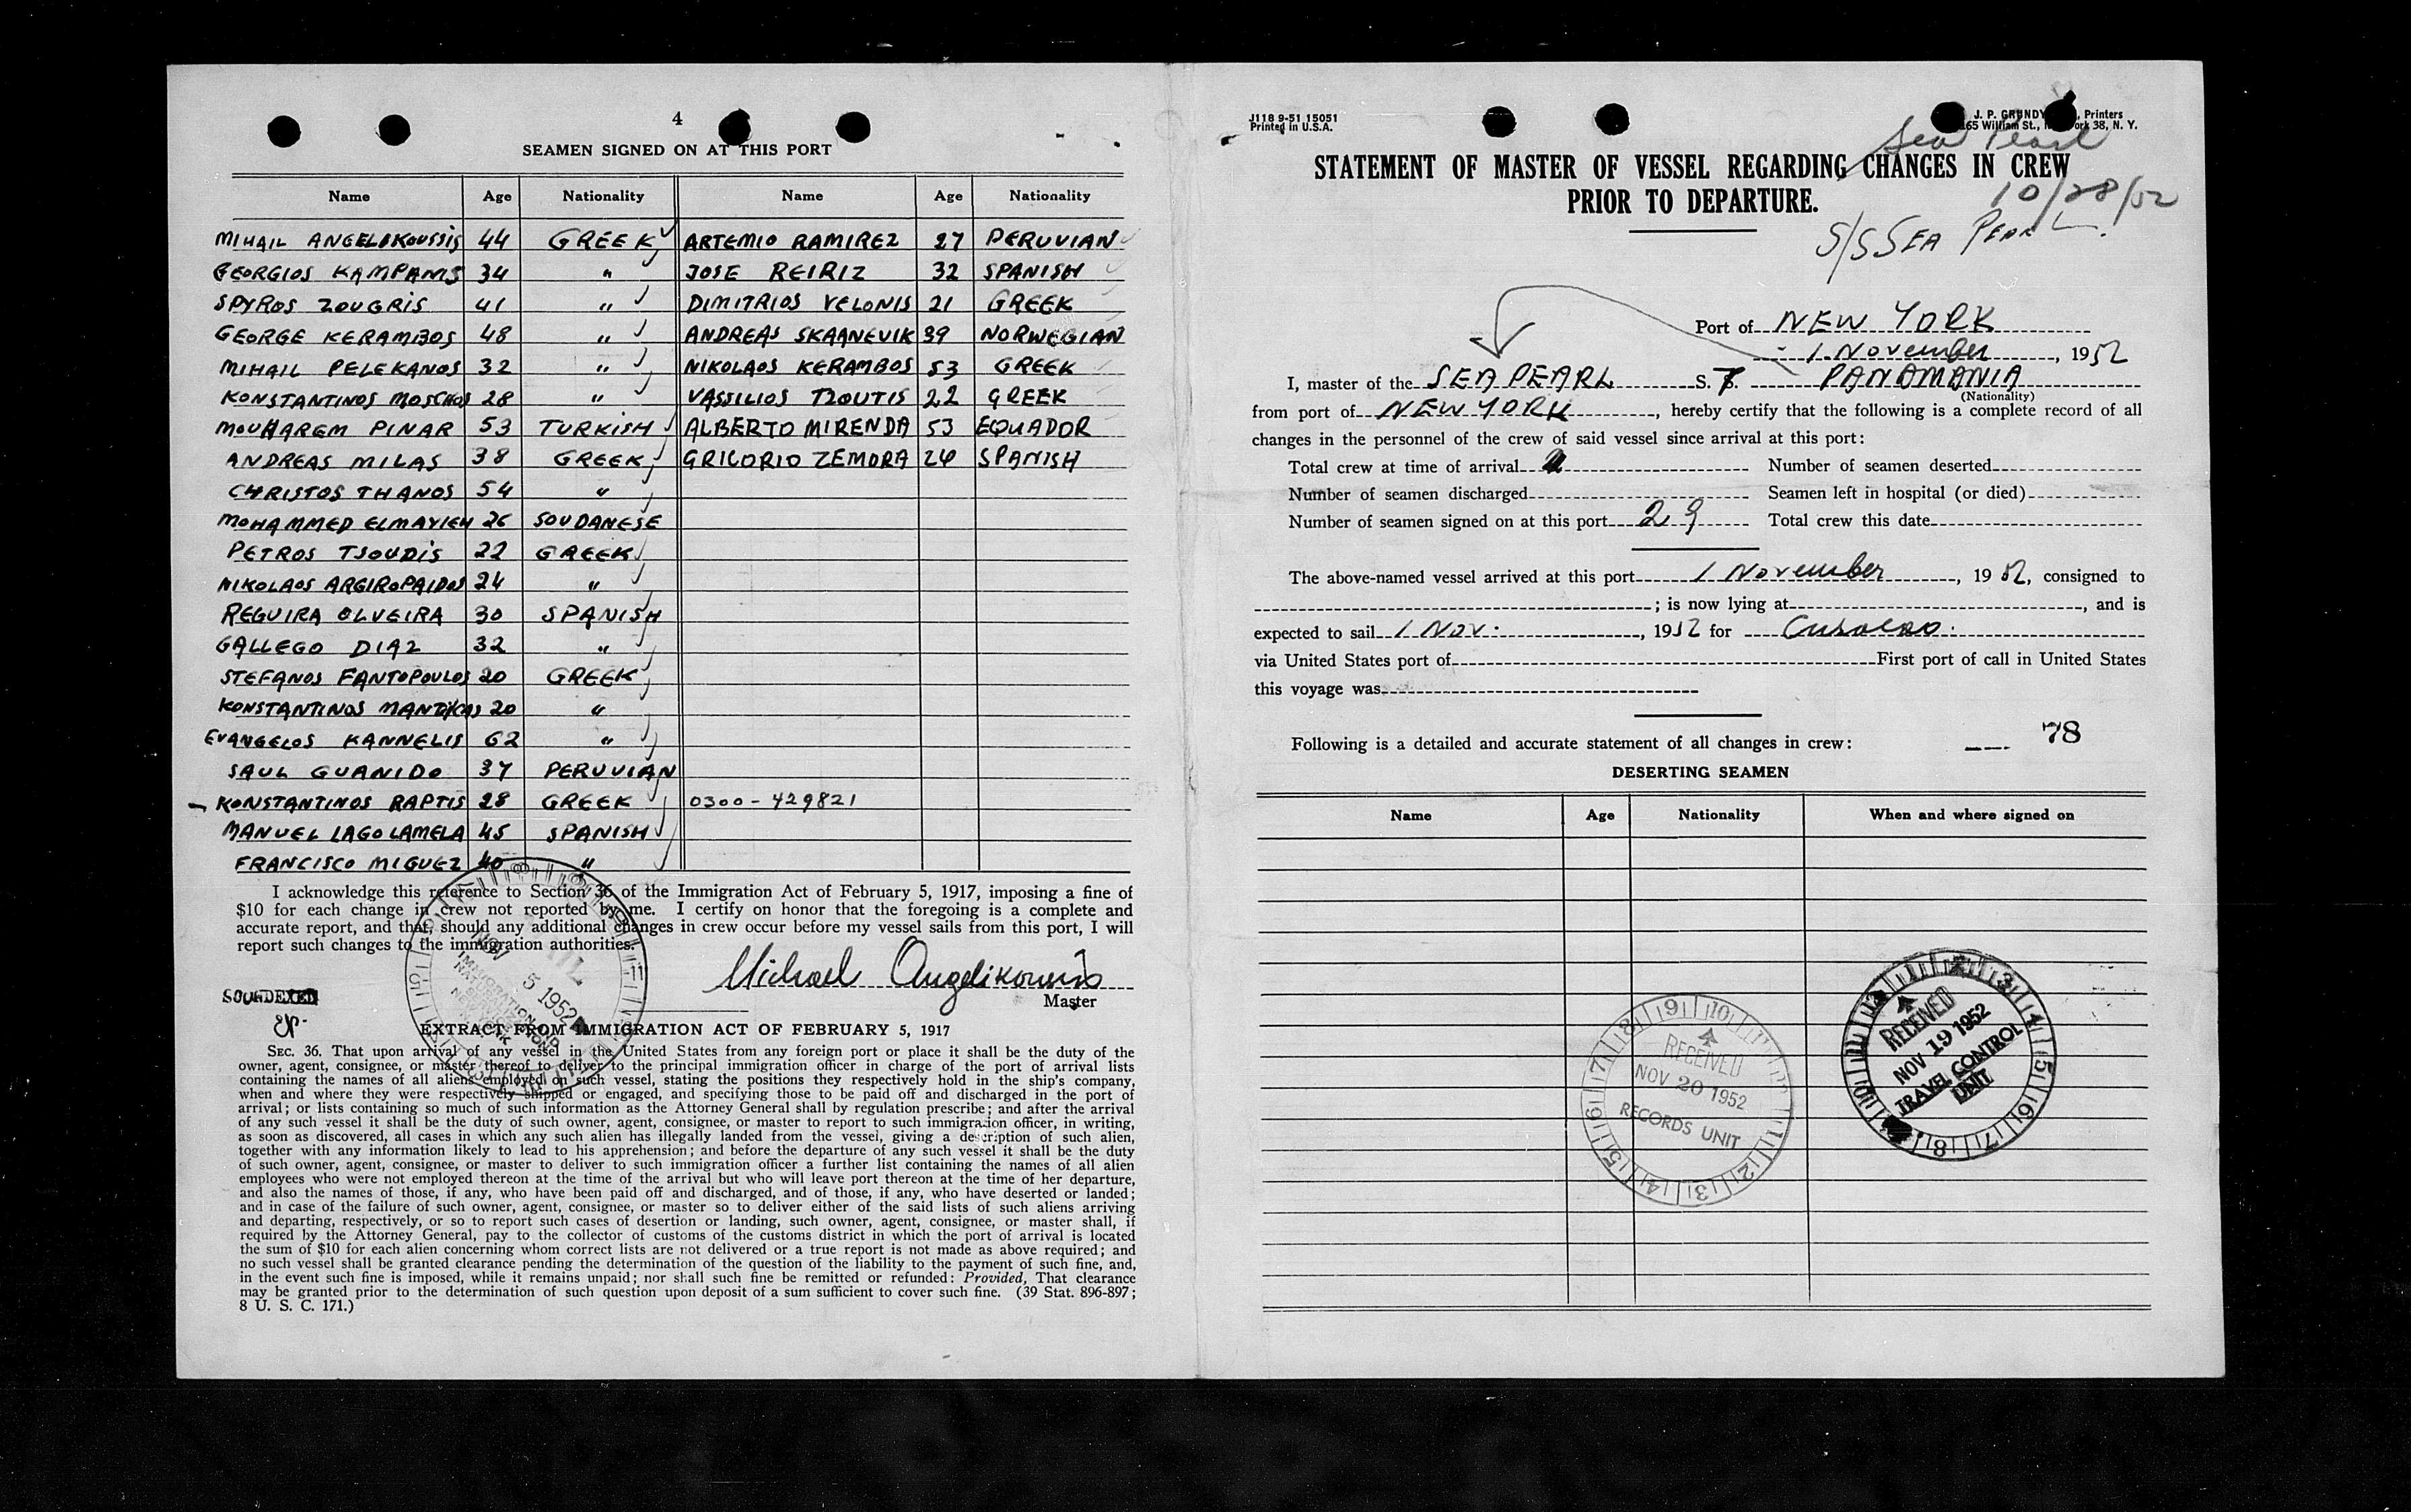 4
SEAMEN SIGNED ON AT THIS PORT
Name Age Nationality Name Age Nationality
MIHAIL ANGELIKOUSSIS 44 GREEK ARTEMIO RAMIREZ 27 PERUVIAN
GEORGIOS KAMPANIS 34 " JOSE REIRIZ 32 SPANISH
SPYROS ZOUGRIS 41 " DIMITRIOS VELONIS 21 GREEK
GEORGE KERAMBOS 48 " ANDREAS SKAANEVIK 39 NORWEGIAN
MIHAIL PELEKANOS 32 " NIKOLAOS KERAMBOS 53 GREEK
KONSTANTINOS MOSCHOS 28 " VASSILIOS TZOUTIS 22 GREEK
MOUHAREM PINAR 53 TURKISH ALBERTO MIRENDA 53 EQUADOR
ANDREAS MILAS 38 GREEK GRICORIO ZEMORA 24 SPANISH
CHRISTOS THANOS 54 "
MOHAMMED ELMAYIEH 26 SOUDANESE
PETROS TSOUDIS 22 GREEK
NIKOLAOS ARGIROPAIDOS 24 "
REGUIRA OLVEIRA 30 SPANISH
GALLEGO DIAZ 32 "
STEFANOS FANTOPOULOS 20 GREEK
KONSTANTINOS MANTIKAS 20 "
EVANGELOS KANNELIS 62 "
SAUL GUANIDO 37 PERUVIAN
KONSTANTINOS RAPTIS 28 GREEK 0300-429821
MANUEL LAGO LAMELA 45 SPANISH
FRANCISCO MIGUEZ 40 "
I acknowledge this reference to Section 36 of the Immigration Act of February 5, 1917, imposing a fine of
$10 for each change in crew not reported by me. I certify on honor that the foregoing is a complete and
accurate report, and that, should any additional changes in crew occur before my vessel sails from this port, I will
report such changes to the immigration authorities.
NOV 5 1952
Michael Angelikoussis
Master
SOUNDEXED
EXTRACT FROM IMMIGRATION ACT OF FEBRUARY 5, 1917
SEC. 36. That upon arrival of any vessel in the United States from any foreign port or place it shall be the duty of the
owner, agent, consignee, or master thereof to deliver to the principal immigration officer in charge of the port of arrival lists
containing the names of all aliens employed on such vessel, stating the positions they respectively hold in the ship's company,
when and where they were respectively shipped or engaged, and specifying those to be paid off and discharged in the port of
arrival; or lists containing so much of such information as the Attorney General shall by regulation prescribe; and after the arrival
of any such vessel it shall be the duty of such owner, agent, consignee, or master to report to such immigration officer, in writing,
as soon as discovered, all cases in which any such alien has illegally landed from the vessel, giving a description of such alien,
together with any information likely to lead to his apprehension; and before the departure of any such vessel it shall be the duty
of such owner, agent, consignee, or master to deliver to such immigration officer a further list containing the names of all alien
employees who were not employed thereon at the time of the arrival but who will leave port thereon at the time of her departure,
and also the names of those, if any, who have been paid off and discharged, and of those, if any, who have deserted or landed;
and in case of the failure of such owner, agent, consignee, or master so to deliver either of the said lists of such aliens arriving
and departing, respectively, or so to report such cases of desertion or landing, such owner, agent, consignee, or master shall, if
required by the Attorney General, pay to the collector of customs of the customs district in which the port of arrival is located
the sum of $10 for each alien concerning whom correct lists are not delivered or a true report is not made as above required; and
no such vessel shall be granted clearance pending the determination of the question of the liability to the payment of such fine, and,
in the event such fine is imposed, while it remains unpaid; nor shall such fine be remitted or refunded: Provided, That clearance
may be granted prior to the determination of such question upon deposit of a sum sufficient to cover such fine. (39 Stat. 896-897;
8 U. S. C. 171.)
J118 9-51 15051
Printed in U.S.A.
J. P. GRUNDY Printers
165 William St., York 38, N. Y.
Sea Pearl
STATEMENT OF MASTER OF VESSEL REGARDING CHANGES IN CREW
PRIOR TO DEPARTURE.
10/28/52
S/S SEA PEARL
Port of NEW YORK
1. November, 1952
I, master of the SEA PEARL S.S. PANAMANIA
(Nationality)
from port of NEW YORK, hereby certify that the following is a complete record of all
changes in the personnel of the crew of said vessel since arrival at this port:
Total crew at time of arrival Number of seamen deserted
Number of seamen discharged Seamen left in hospital (or died)
Number of seamen signed on at this port 29 Total crew this date
The above-named vessel arrived at this port 1 November, 1952, consigned to
; is now lying at , and is
expected to sail 1 Nov., 1952 for Curacao.
via United States port of First port of call in United States
this voyage was
Following is a detailed and accurate statement of all changes in crew: 78
DESERTING SEAMEN
Name Age Nationality When and where signed on
RECEIVED
NOV 19 1952
TRAVEL CONTROL
UNIT
RECEIVED
NOV 20 1952
RECORDS UNIT